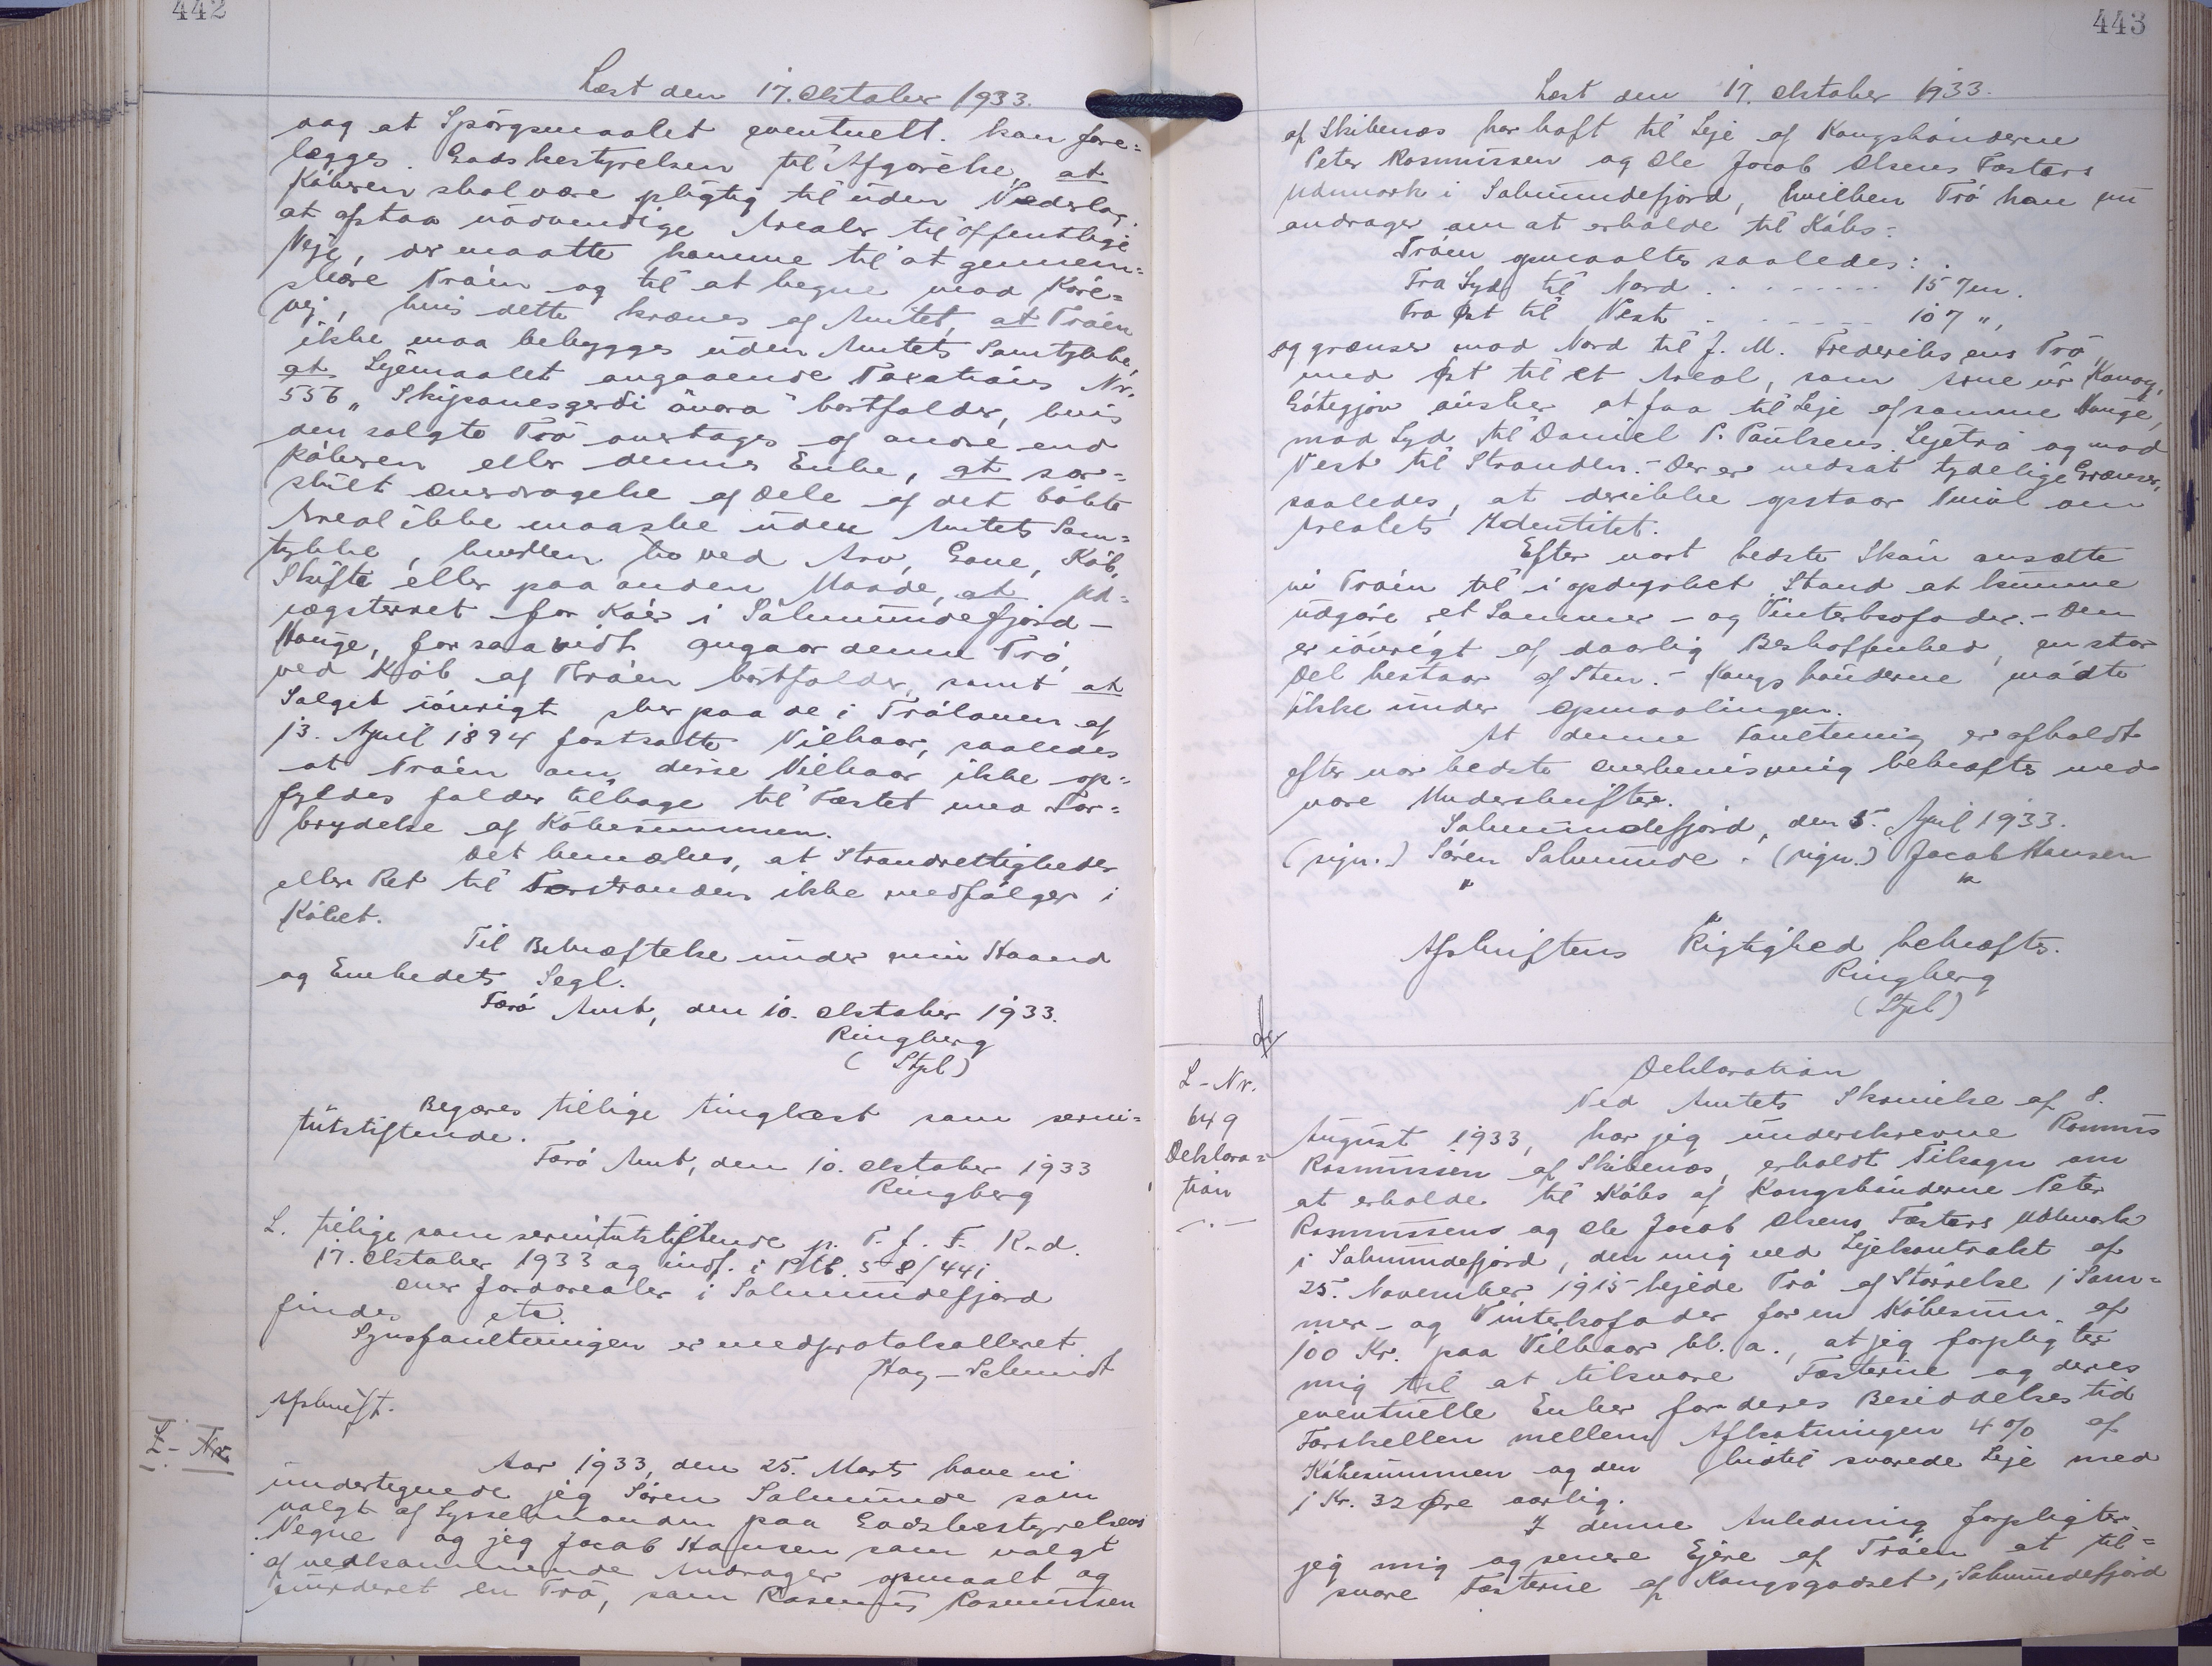 442
Læst den 17. Oktober 1933.
og at Spörgsmaalet eventuelt kan fore=
lægges Godsbestyrelsen til Afgörelse, at
Köberen skal være pligtig til uden Vederlag
at afstaa nödvendige Arealer til offentlige
Veje, der maatte komme til at gennem=
skære Tröen og til at hegne mod Köre=
vej, hvis dette kræves af Amtet, at Tröen
ikke maa bebygges uden Amtets Samtykke,
at Lejemaalet angaaende Taxations Nr.
556 „Skipanesgerdi övara" bortfalder, hvis
den solgte Trö overtages af andre end
Köberen eller dennes Enke, at sær=
skilt Overdragelse af Dele af det købte
Areal ikke maa ske uden Amtets Sam=
tykke, hverken ved Arv, Gave, Køb,
Skifte eller paa anden Maade, at Ud=
lægsterret for Köer i Salmundefjord-
Hauge, forsaavidt angaar denne Trö,
ved Köb af Tröen bortfalder, samt at
Salget iövrigt sker paa de i Trölaven af
13. April 1894 fastsatte Vilkaar, saaledes
at Tröen om disse Vilkaar ikke op=
fyldes falder tilbage til Fæstet med For=
brydelse af Köbesummen.
Det bemærkes, at Strandrettigheder
eller Ret til Forstranden ikke medfölger i
Köbet.
Til Bekræftelse under min Haand
og Embedets Segl.
Færö Amt, den 10. Oktober 1933.
Ringberg
(Stpl)
Begæres tillige tinglæst som servi=
tutstiftende.
Færö Amt, den 10. Oktober 1933
Ringberg
L. tillige som servitutstiftende p. T. f. F. R-d.
17. Oktober 1933 og indf. i Ptk. 58/441
over Jordarealer i Salmundefjord
findes etc.
Synsforretningen er medprotokolleret
Hog-Schmidt
Afskrift.
L-Nr.
Aar 1933, den 25. Marts have vi
undertegnede jeg Sören Salmunde som
valgt af Sysselmanden paa Godsbestyrelsens
Vegne og jeg Jacob Hansen som valgt
af vedkommende Andrager opmaalt og
vurderet en Trö, som Rasmus Rasmussen
443
Læst den 17. Oktober 1933.
af Skibenæs har haft til Leje af Kongsbönderne
Peter Rasmussen og Ole Jacob Olsens Fæsters
Udmark i Salmundefjord, hvilken Trö han nu
andrager om at erholde til Købs:
Tröen opmaaltes saaledes:
Fra Syd til Nord . . . . . . . . 157 m.
Fra Øst til Vest . . . . . . . 107 „,
og grænser mod Nord til J. M. Frederiksens Trö,
mod Øst til et Areal, som Arne úr Kavag,
Götegjov ønsker at faa til Leje af samme Hauge,
mod Syd til Daniel P. Paulsens Lejetrö og mod
Vest til Stranden. - Der er nedsat tydelige Grænser,
saaledes, at der ikke opstaar Tvivl om
Arealets Identitet.
Efter vort bedste Skön ansætte
vi Tröen til i opdyrket Stand at kunne
udgöre et Sommer- og Vinterkofoder. - Den
er iövrigt af daarlig Beskaffenhed, en stor
Del bestaar af Sten. - Kongsbönderne mödte
ikke under Opmaalingen.
At denne Forretning er afholdt
efter vor bedste Overbevisning bekræftes med
vore Underskrifter.
Salmundefjord, den 5. April 1933.
(sign.) Sören Salmunde. (sign.) Jacob Hansen
" "
Afskriftens Rigtighed bekræftes.
Ringberg
(Stpl)
L-Nr.
649
Deklara=
tion
Deklaration
Ved Amtets Skrivelse af 8.
August 1933, har jeg underskrevne Rasmus
Rasmussen af Skibenæs, erholdt Tilsagn om
at erholde til Købs af Kongsbönderne Peter
Rasmussens og Ole Jacob Olsens Fæsters Udmark
i Salmundefjord, den mig ved Lejekontrakt af
25. November 1915 lejede Trö af Störrelse 1 Som=
mer- og Vinterkofoder for en Köbesum af
100 Kr. paa Vilkaar bl. a., at jeg forpligter
mig til at tilsvare Fæsterne og deres
eventuelle Enker for deres Besiddelsestid
Forskellen mellem Afkastningen 4% af
Köbesummen og den hidtil svarede Leje med
1 Kr. 32 Øre aarlig.
I denne Anledning forpligter
jeg mig og senere Ejere af Tröen at til=
svare Fæsterne af Kongsgodset i Salmundefjord